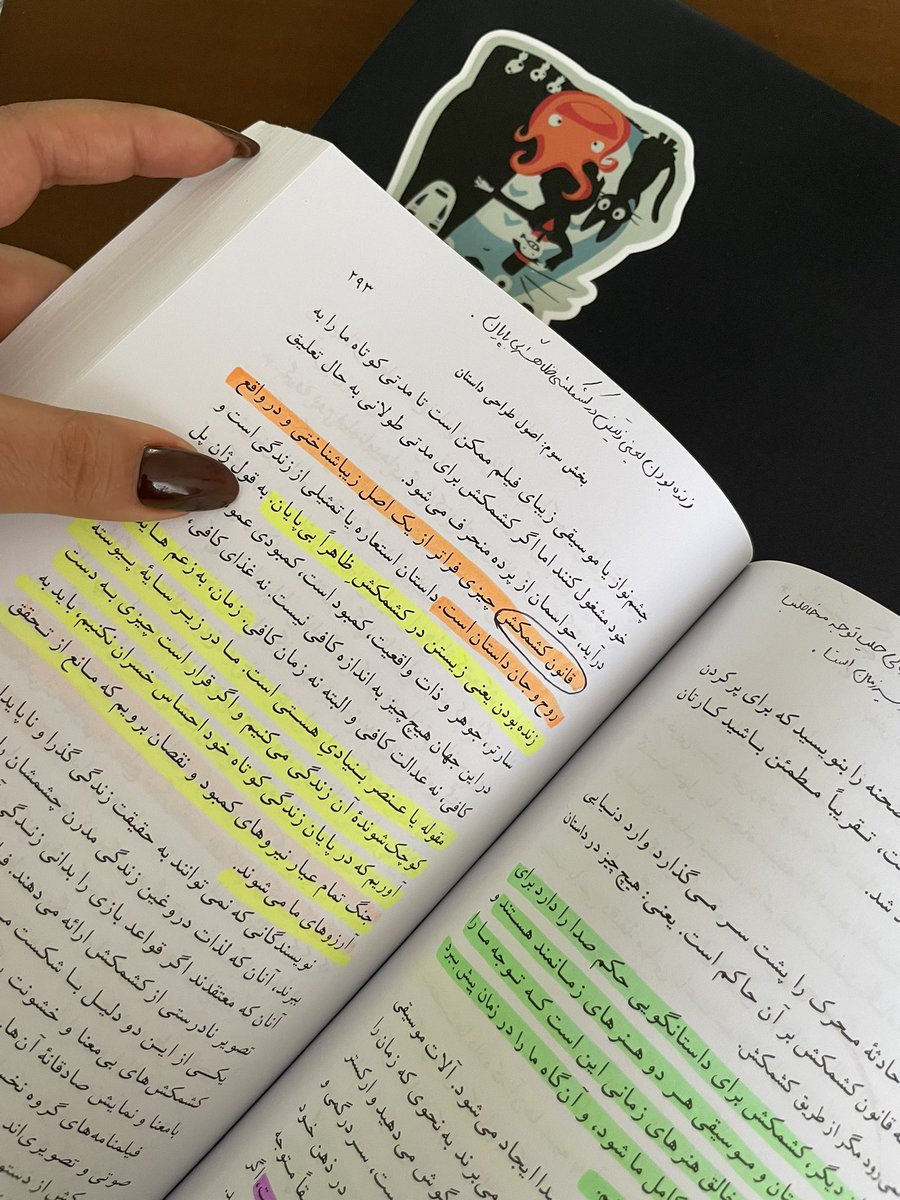 جلب توجه مخاطب
صحنه را بنویسید که برای پر کردن
تقریباً مطمئن باشید کارتان
شد.
حادثهٔ محرک را پشت سر می‌گذارد وارد دنیایی
قانون کشمکش بر آن حاکم است. یعنی: هیچ چیز در داستان
مگر از طریق کشمکش.
دیگر، کشمکش برای داستانگویی حکم صدا را دارد برای
و موسیقی هر دو هنرهای زمانمند هستند و
خالق هنرهای زمانی این است که توجه ما را
کامل ما شود، و آن گاه ما را در زمان پیش ببرد
صدا ایجاد می‌شود. آلات موسیقی
می‌برند به نحوی که زمان را
گوش می‌دهید و ارکستر
سر درگمی و
در ذهن خود
متوجه
زنده بودن یعنی زیستن در کشمکش ظاهراً بی پایان.
۲۹۳
بخش سوم: اصول طراحی داستان
چشم‌نواز یا موسیقی زیبای فیلم ممکن است تا مدتی کوتاه ما را به
خود مشغول کنند اما اگر کشمکش برای مدتی طولانی به حال تعلیق
درآید، حواسمان از پرده منحرف می‌شود.
قانون کشمکش چیزی فراتر از یک اصل زیباشناختی و در واقع
روح و جان داستان است. داستان استعاره یا تمثیلی از زندگی است و
زنده بودن یعنی زیستن در کشمکش ظاهراً بی‌پایان. به قول ژان پل
سارتر، جوهر و ذات واقعیت، کمبود است، کمبودی عمو
در این جهان هیچ چیز به اندازه کافی نیست. نه غذای کافی،
کافی، نه عدالت کافی و البته نه زمان کافی. زمان، به زعم هاید
مقوله یا عنصر بنیادی هستی است. ما در زیر سایهٔ پیوسته
کوچک‌شوندهٔ آن زندگی می‌کنیم و اگر قرار است چیزی به دست
آوریم که در پایان زندگی کوتاه خود احساس خسران نکنیم، باید به
جنگ تمام عیار نیروهای کمبود و نقصان برویم که مانع از تحقق
آرزوهای ما می‌شوند.
نویسندگانی که نمی‌توانند به حقیقت زندگی گذرا و ناپاید
ببرند، آنان که لذات دروغین زندگی مدرن چشمشان را
آنان که معتقدند اگر قواعد بازی را بدانی زندگی
تصویر نادرستی از کشمکش ارائه می‌دهند.
یکی از این دو دلیل با شکست
کشمکش‌های بی‌معنا و خشونت
بامعنا و نمایش صادقانهٔ آن‌ها
فیلمنامه‌های گروه نخ
صوتی و تصویری‌اند